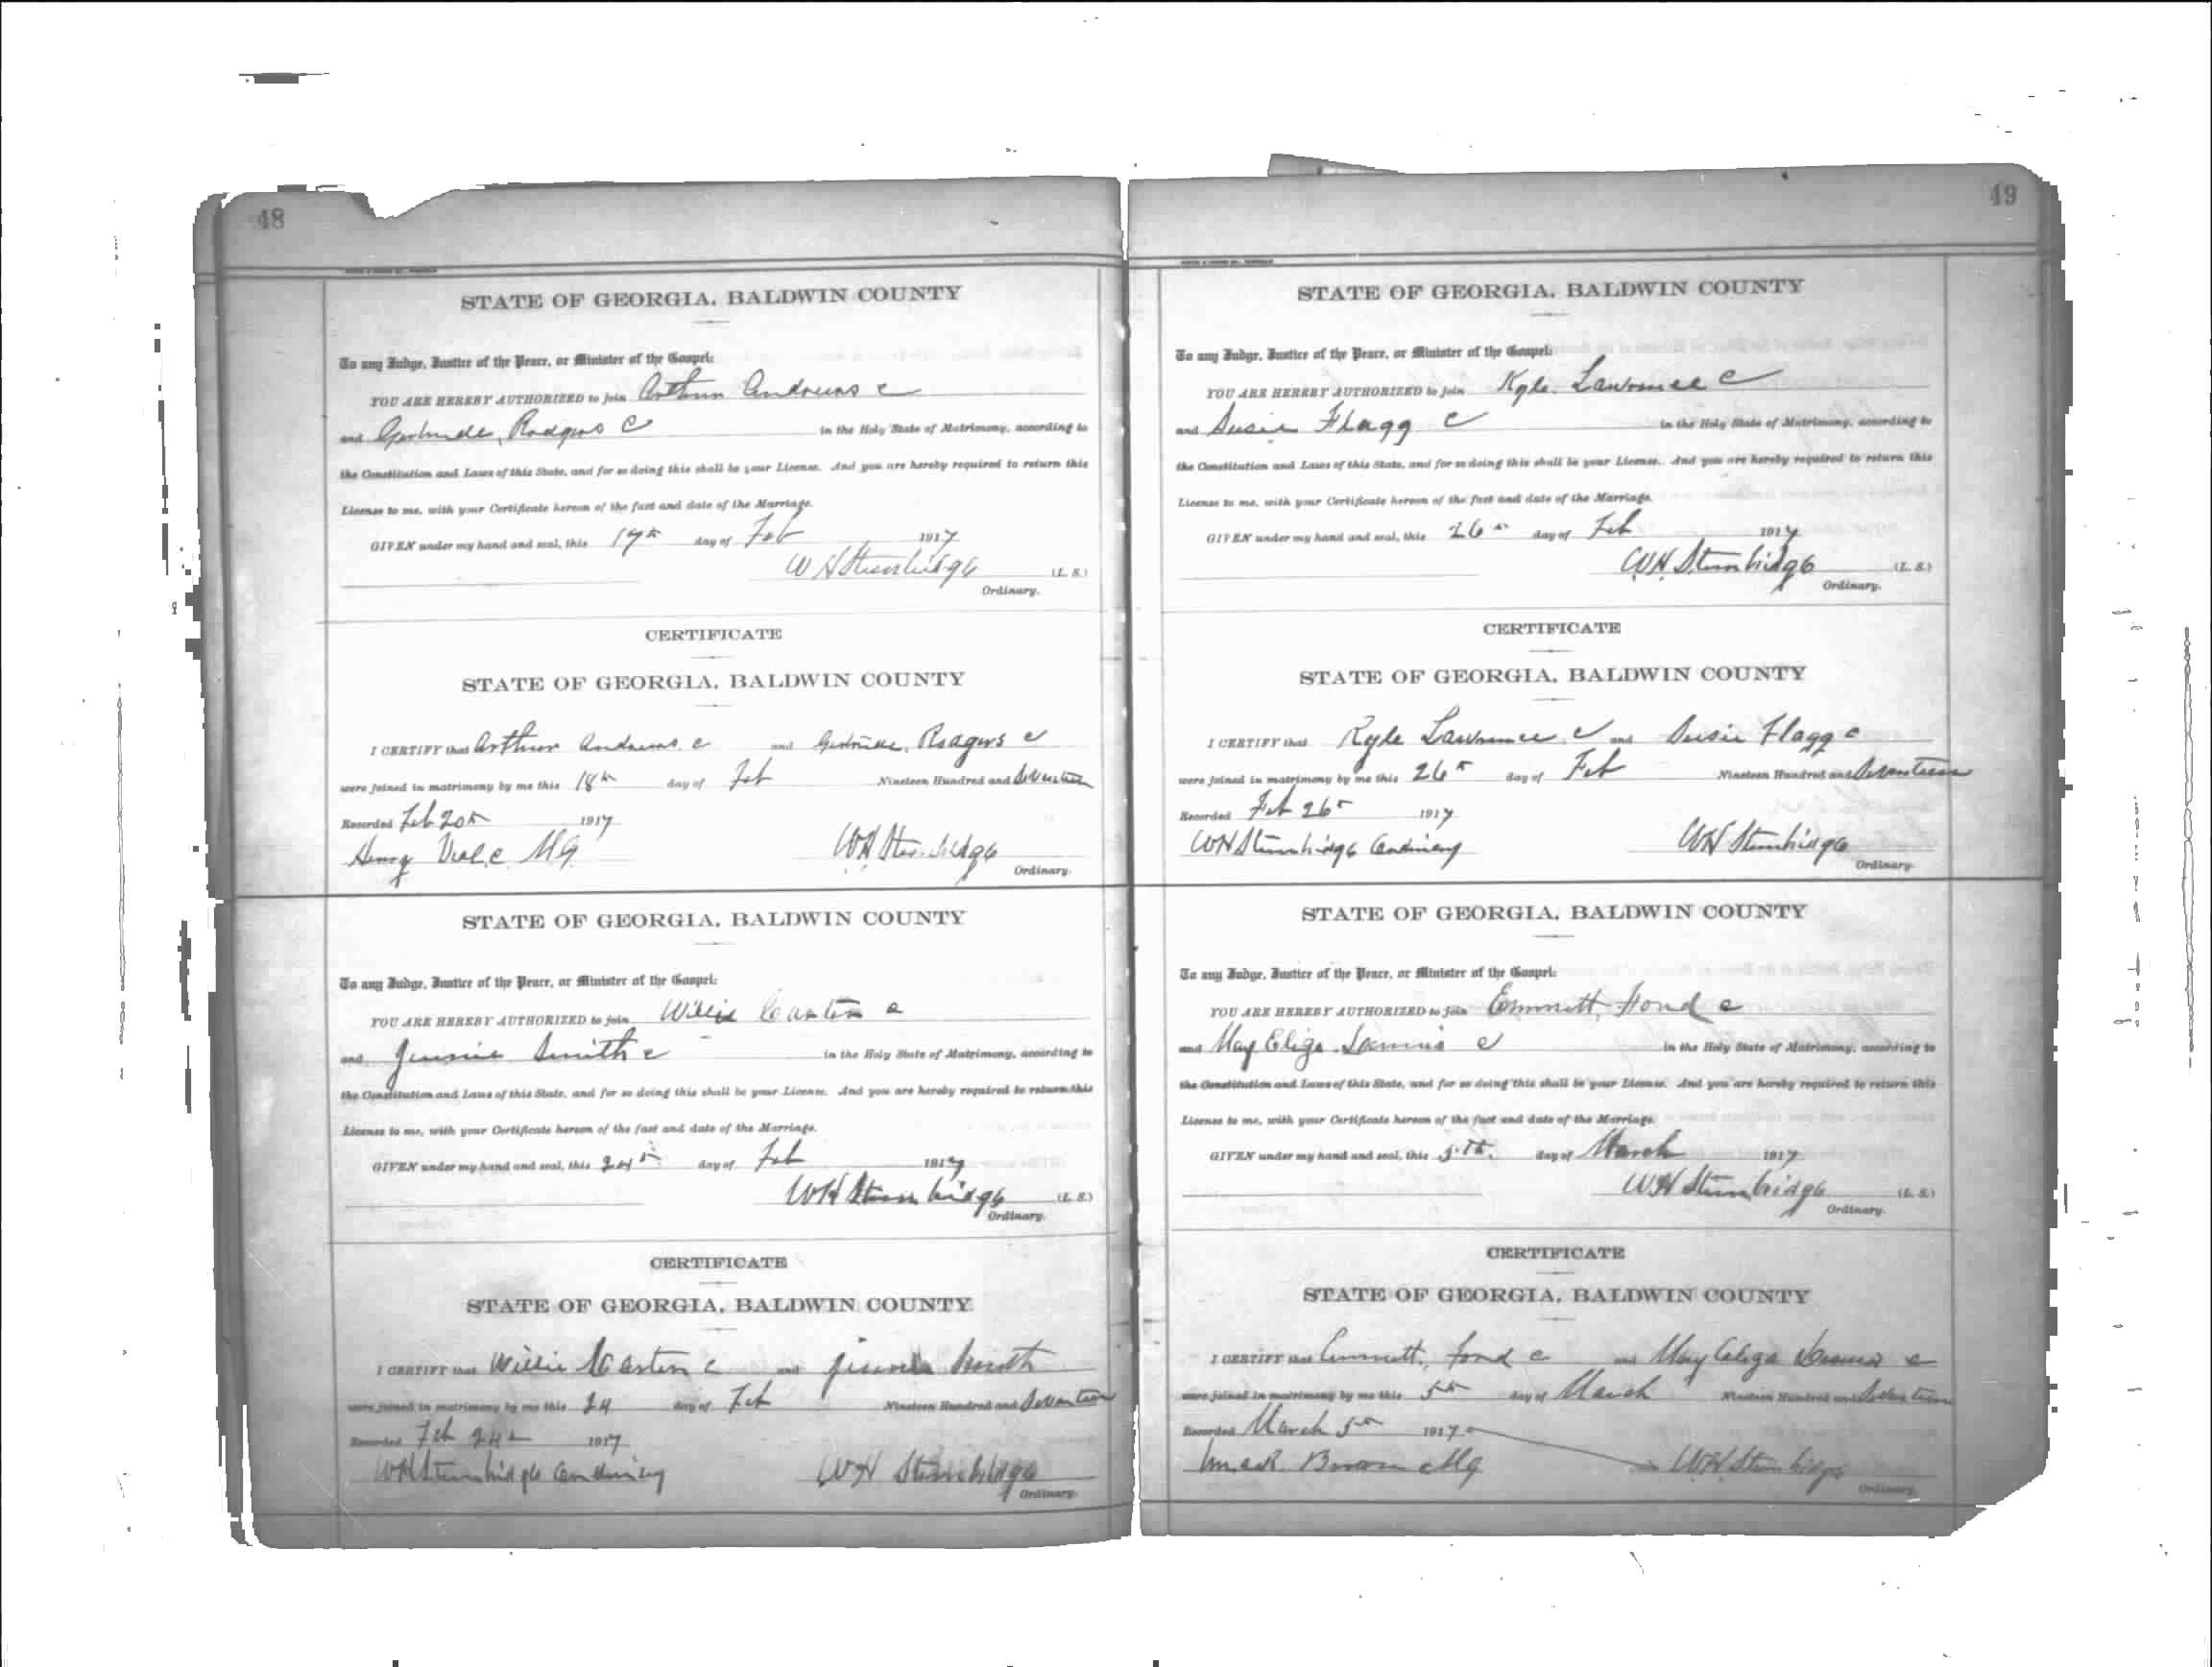 48
STATE OF GEORGIA, BALDWIN COUNTY
To any Judge, Justice of the Peace, or Minister of the Gospel:
YOU ARE HEREBY AUTHORIZED to join Arthur Andrews c
and Gertrude Rodgers C in the Holy State of Matrimony, according to
the Constitution and Laws of this State, and for so doing this shall be your License. And you are hereby required to return this
License to me, with your Certificate hereon of the fact and date of the Marriage.
GIVEN under my hand and seal, this 17th day of Feb 1917
W H Stembridge (L. S.)
Ordinary.
CERTIFICATE
STATE OF GEORGIA, BALDWIN COUNTY
I CERTIFY that Arthur Andrews c and Gertrude Rodgers c
were joined in matrimony by me this 18th day of Feb Nineteen Hundred and Seventeen
Recorded Feb 20th 1917
Henry M G W H Stembridge
Ordinary.
STATE OF GEORGIA, BALDWIN COUNTY
To any Judge, Justice of the Peace, or Minister of the Gospel:
YOU ARE HEREBY AUTHORIZED to join Willie c
and Jennie Smith c in the Holy State of Matrimony, according to
the Constitution and Laws of this State, and for so doing this shall be your License. And you are hereby required to return this
License to me, with your Certificate hereon of the fact and date of the Marriage.
GIVEN under my hand and seal, this 24th day of Feb 1917
W H Stembridge (L. S.)
Ordinary.
CERTIFICATE
STATE OF GEORGIA, BALDWIN COUNTY
I CERTIFY that Willie c and Jennie Smith
were joined in matrimony by me this 24 day of Feb Nineteen Hundred and Seventeen
Recorded Feb 24th 1917
W H Stembridge Ordinary W H Stembridge
Ordinary.
49
STATE OF GEORGIA, BALDWIN COUNTY
To any Judge, Justice of the Peace, or Minister of the Gospel:
YOU ARE HEREBY AUTHORIZED to join Kyle Lawrence C
and Susie Flagg C in the Holy State of Matrimony, according to
the Constitution and Laws of this State, and for so doing this shall be your License. And you are hereby required to return this
License to me, with your Certificate hereon of the fact and date of the Marriage.
GIVEN under my hand and seal, this 26th day of Feb 1917
W H Stembridge (L. S.)
Ordinary.
CERTIFICATE
STATE OF GEORGIA, BALDWIN COUNTY
I CERTIFY that Kyle Lawrence c and Susie Flagg c
were joined in matrimony by me this 26th day of Feb Nineteen Hundred and Seventeen
Recorded Feb 26th 1917
W H Stembridge Ordinary W H Stembridge
Ordinary.
STATE OF GEORGIA, BALDWIN COUNTY
To any Judge, Justice of the Peace, or Minister of the Gospel:
YOU ARE HEREBY AUTHORIZED to join Emmett c
and May Eliza c in the Holy State of Matrimony, according to
the Constitution and Laws of this State, and for so doing this shall be your License. And you are hereby required to return this
License to me, with your Certificate hereon of the fact and date of the Marriage.
GIVEN under my hand and seal, this 5th day of March 1917
W H Stembridge (L. S.)
Ordinary.
CERTIFICATE
STATE OF GEORGIA, BALDWIN COUNTY
I CERTIFY that Emmett c and May Eliza c
were joined in matrimony by me this 5th day of March Nineteen Hundred and Seventeen
Recorded March 5th 1917
Brown M G W H Stembridge
Ordinary.